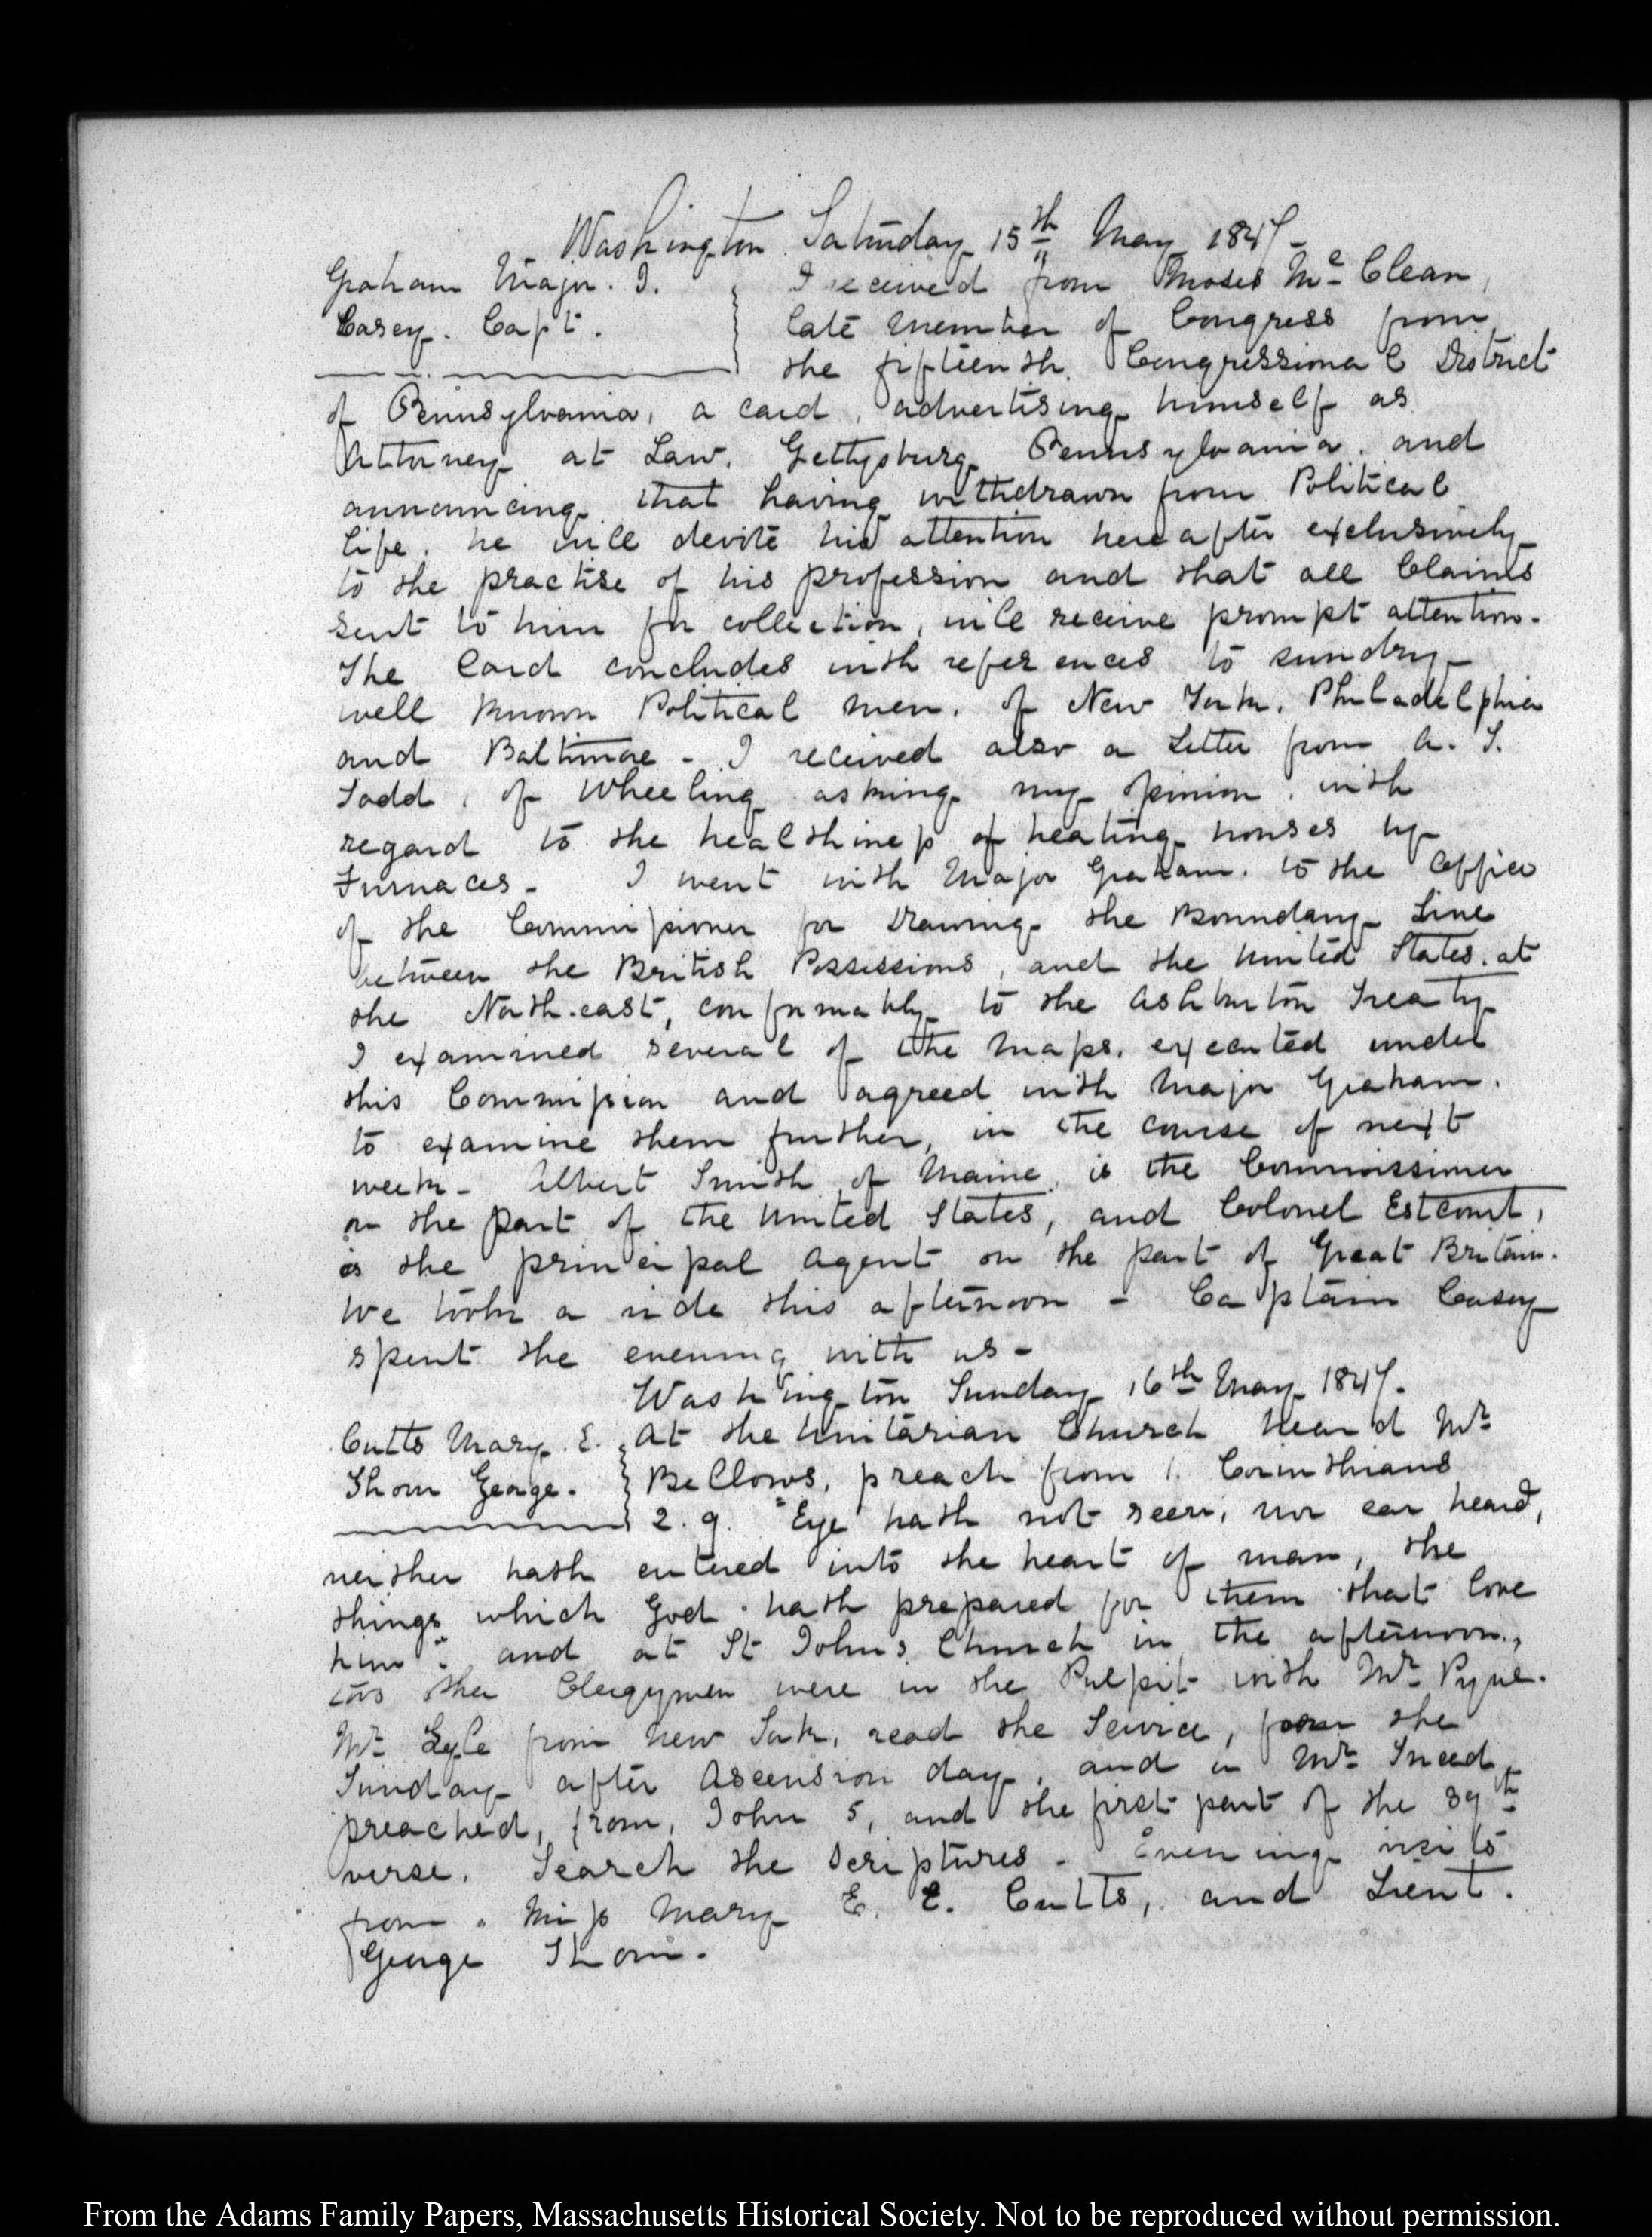 Washington Saturday 15th May 1847-
Graham Major. J. I received from Moses Mc Clean,
Casey. Capt. late Member of Congress from
the fifteenth Congressional District
of Pennsylvania, a card, advertising himself as
Attorney at Law. Gettysburg Pennsylvania. and
announcing that having withdrawn from Political
life. he will devote his attention hereafter exclusively
to the practise of his profession and that all Claims
sent to him for collection, will receive prompt attention.
The Card concludes with references to sundry
well known Political men. of New York. Philadelphia
and Baltimore - I received also a Letter from A. S.
Todd, of Wheeling asking my opinion, with
regard to the healthiness of heating houses by
Furnaces - I went with Major Graham. to the Office
of the Commissioner for Drawing the Boundary Line
between the British Possessions, and the United States. at
the North-east, conformably to the Ashburton Treaty
I examined several of the Maps. executed under
this Commission and agreed with Major Graham.
to examine them further, in the course of next
week - Albert Smith of Maine is the Commissioner
on the part of the United States, and Colonel Estcourt,
is the principal Agent on the part of Great Britain.
We took a ride this afternoon - Captain Casey
spent the evening with us -
Washington Sunday 16th May 1847.
Cutts Mary. E. At the Unitarian Church heard Mr
Thom George. Bellows, preach from 1. Corinthians
2. 9. "Eye hath not seen, nor ear heard,
neither hath entered into the heart of man, the
things which God hath prepared for them that love
him": and at St Johns Church in the afternoon,
two other Clergymen were in the Pulpit with Mr Pyne.
Mr Lyle from New York, read the Service, for the
Sunday after Ascension day, and a Mr Sneed
preached, from, John 5, and the first part of the 39th
verse. Search the Scriptures - Evening visits
from Miss Mary E. E. Cutts, and Lieut.
George Thom.
From the Adams Family Papers, Massachusetts Historical Society. Not to be reproduced without permission.